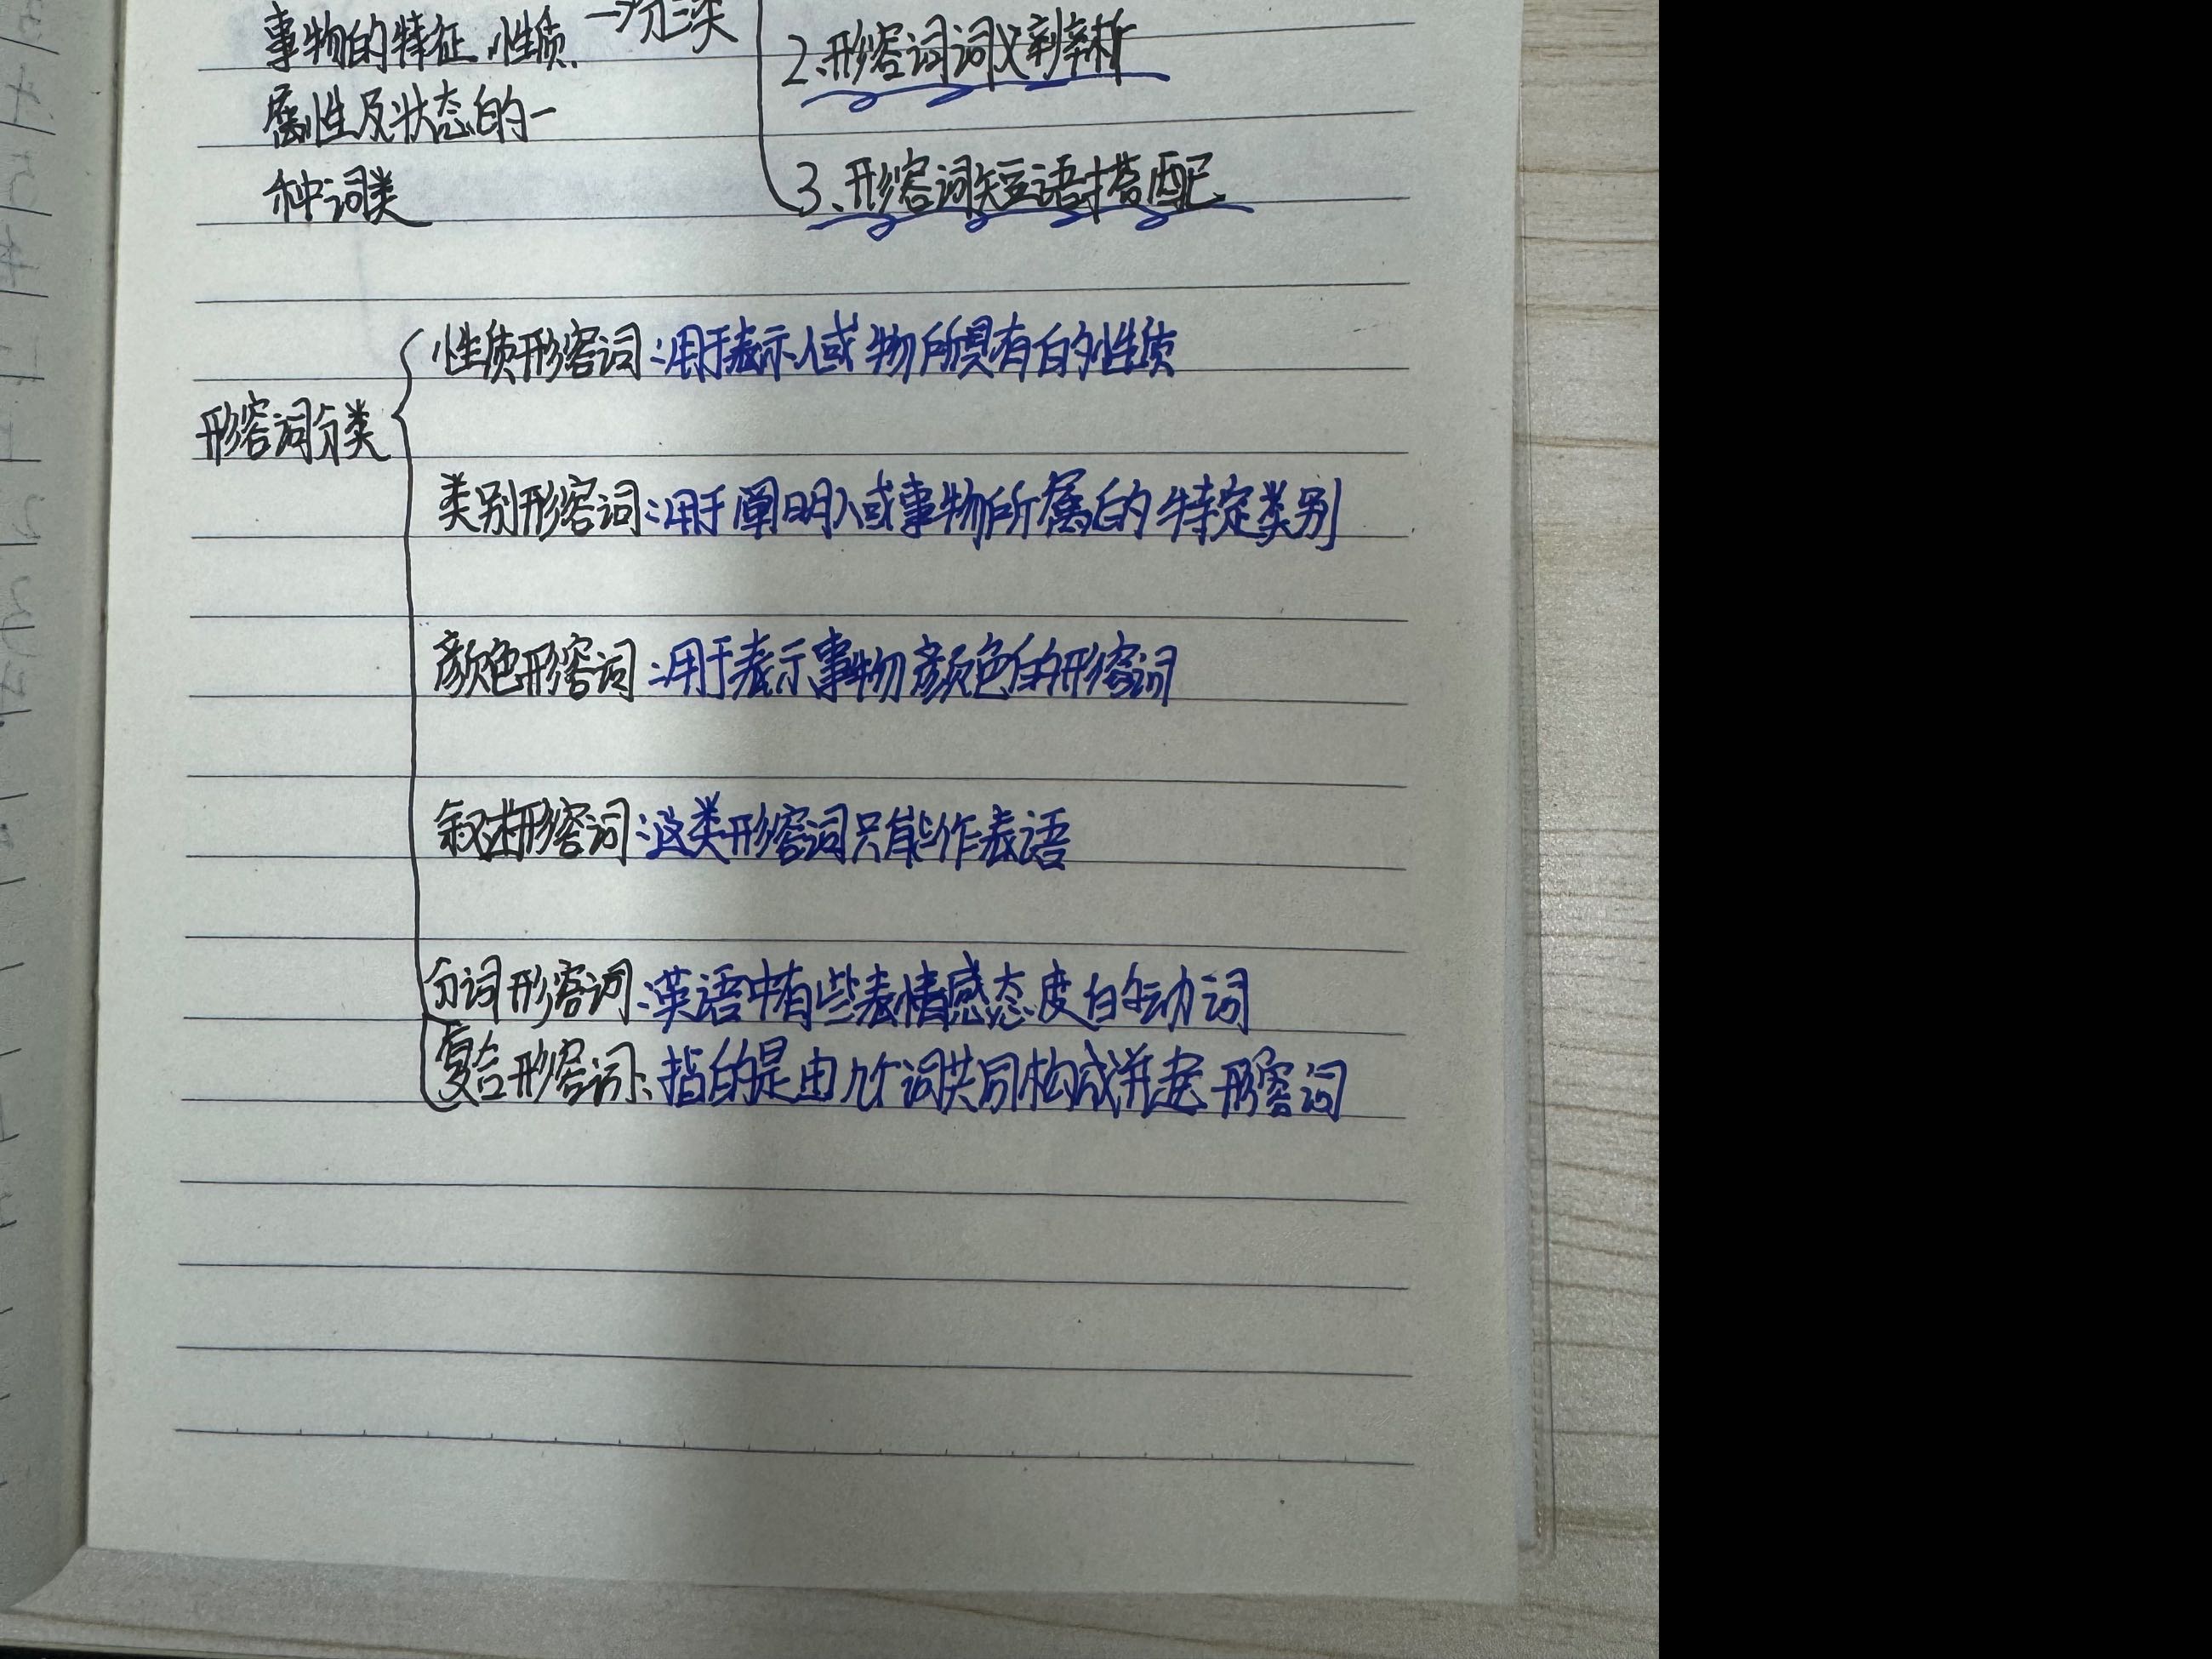 事物的特征、性质、
→分三类
属性及状态的一
种词类
2、形容词词义辨析
3、形容词短语搭配
形容词分类
性质形容词：用于表示人或物所具有的性质
类别形容词：用于阐明人或事物所属的特定类别
颜色形容词：用于表示事物颜色的形容词
叙述形容词：这类形容词只能作表语
分词形容词：英语中有些表情感态度的动词
复合形容词：指的是由几个词共同构成并 形容词